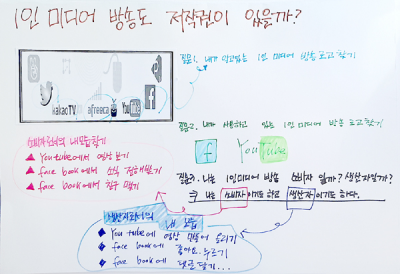 1인 미디어 방송도 저작권이 있을까?
질문1. 내가 알고있는 1인 미디어 방송 로고찾기
kakaoTV afreeca You Tube f
질문2. 내가 사용하고 있는 1인 미디어 방송 로고찾기
f YouTube
소비자로서의 내모습찾기
▲ You tube에서 영상 보기
▲ face book에서 소식
▲ face book에서 친구 맺기
질문3. 나는 1인미디어 방송 소비자 일까? 생산자일까?
나는 소비자이기도 하고 생산자이기도 하다.
생산자로서의 내 모습
● You tube에 영상 만들어 올리기
● face book에 좋아요 누르기
● face book에 댓글 달기...